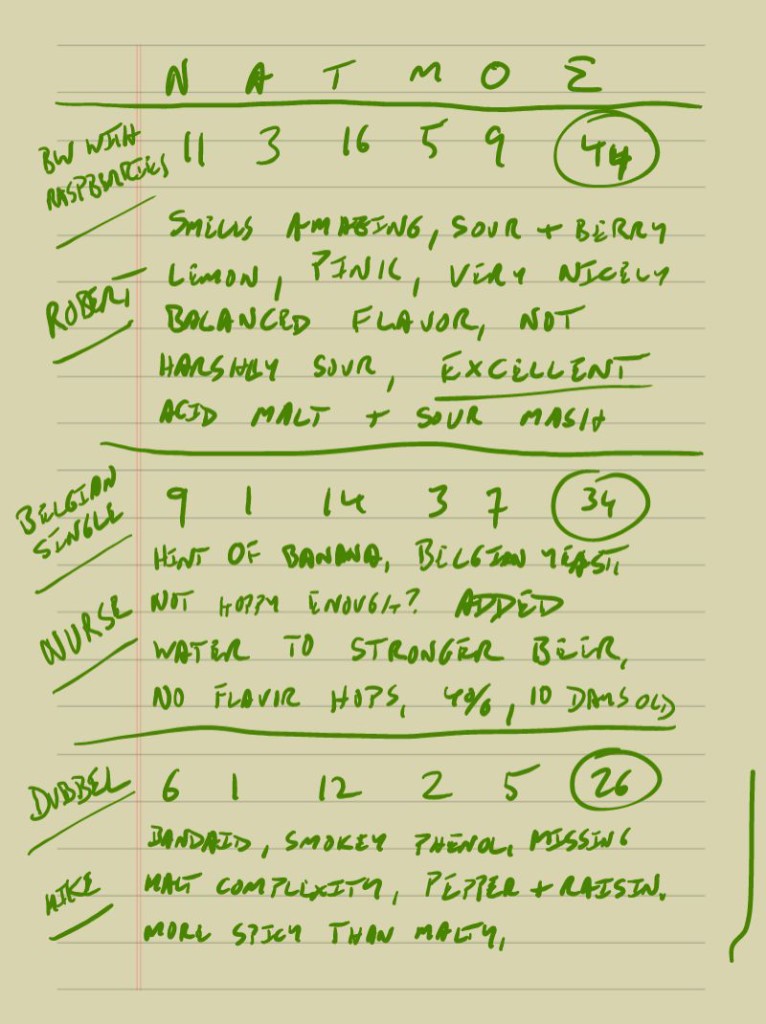 N A T M O Σ
BW WITH
RASPBERRIES
11 3 16 5 9 44
SMELLS AMAZING, SOUR + BERRY
LEMON, PINK, VERY NICELY
ROBERT
BALANCED FLAVOR, NOT
HARSHLY SOUR, EXCELLENT
ACID MALT + SOUR MASH
BELGIAN
SINGLE
9 1 14 3 7 34
HINT OF BANANA, BELGIAN YEAST.
NOT HOPPY ENOUGH? ADDED
NURSE
WATER TO STRONGER BEER,
NO FLAVIR HOPS, 40%, 10 DAYS OLD
DUBBEL
6 1 12 2 5 26
BANDAID, SMOKEY PHENOL, MISSING
MIKE
MALT COMPLEXITY, PEPPER + RAISIN.
MORE SPICY THAN MALTY,